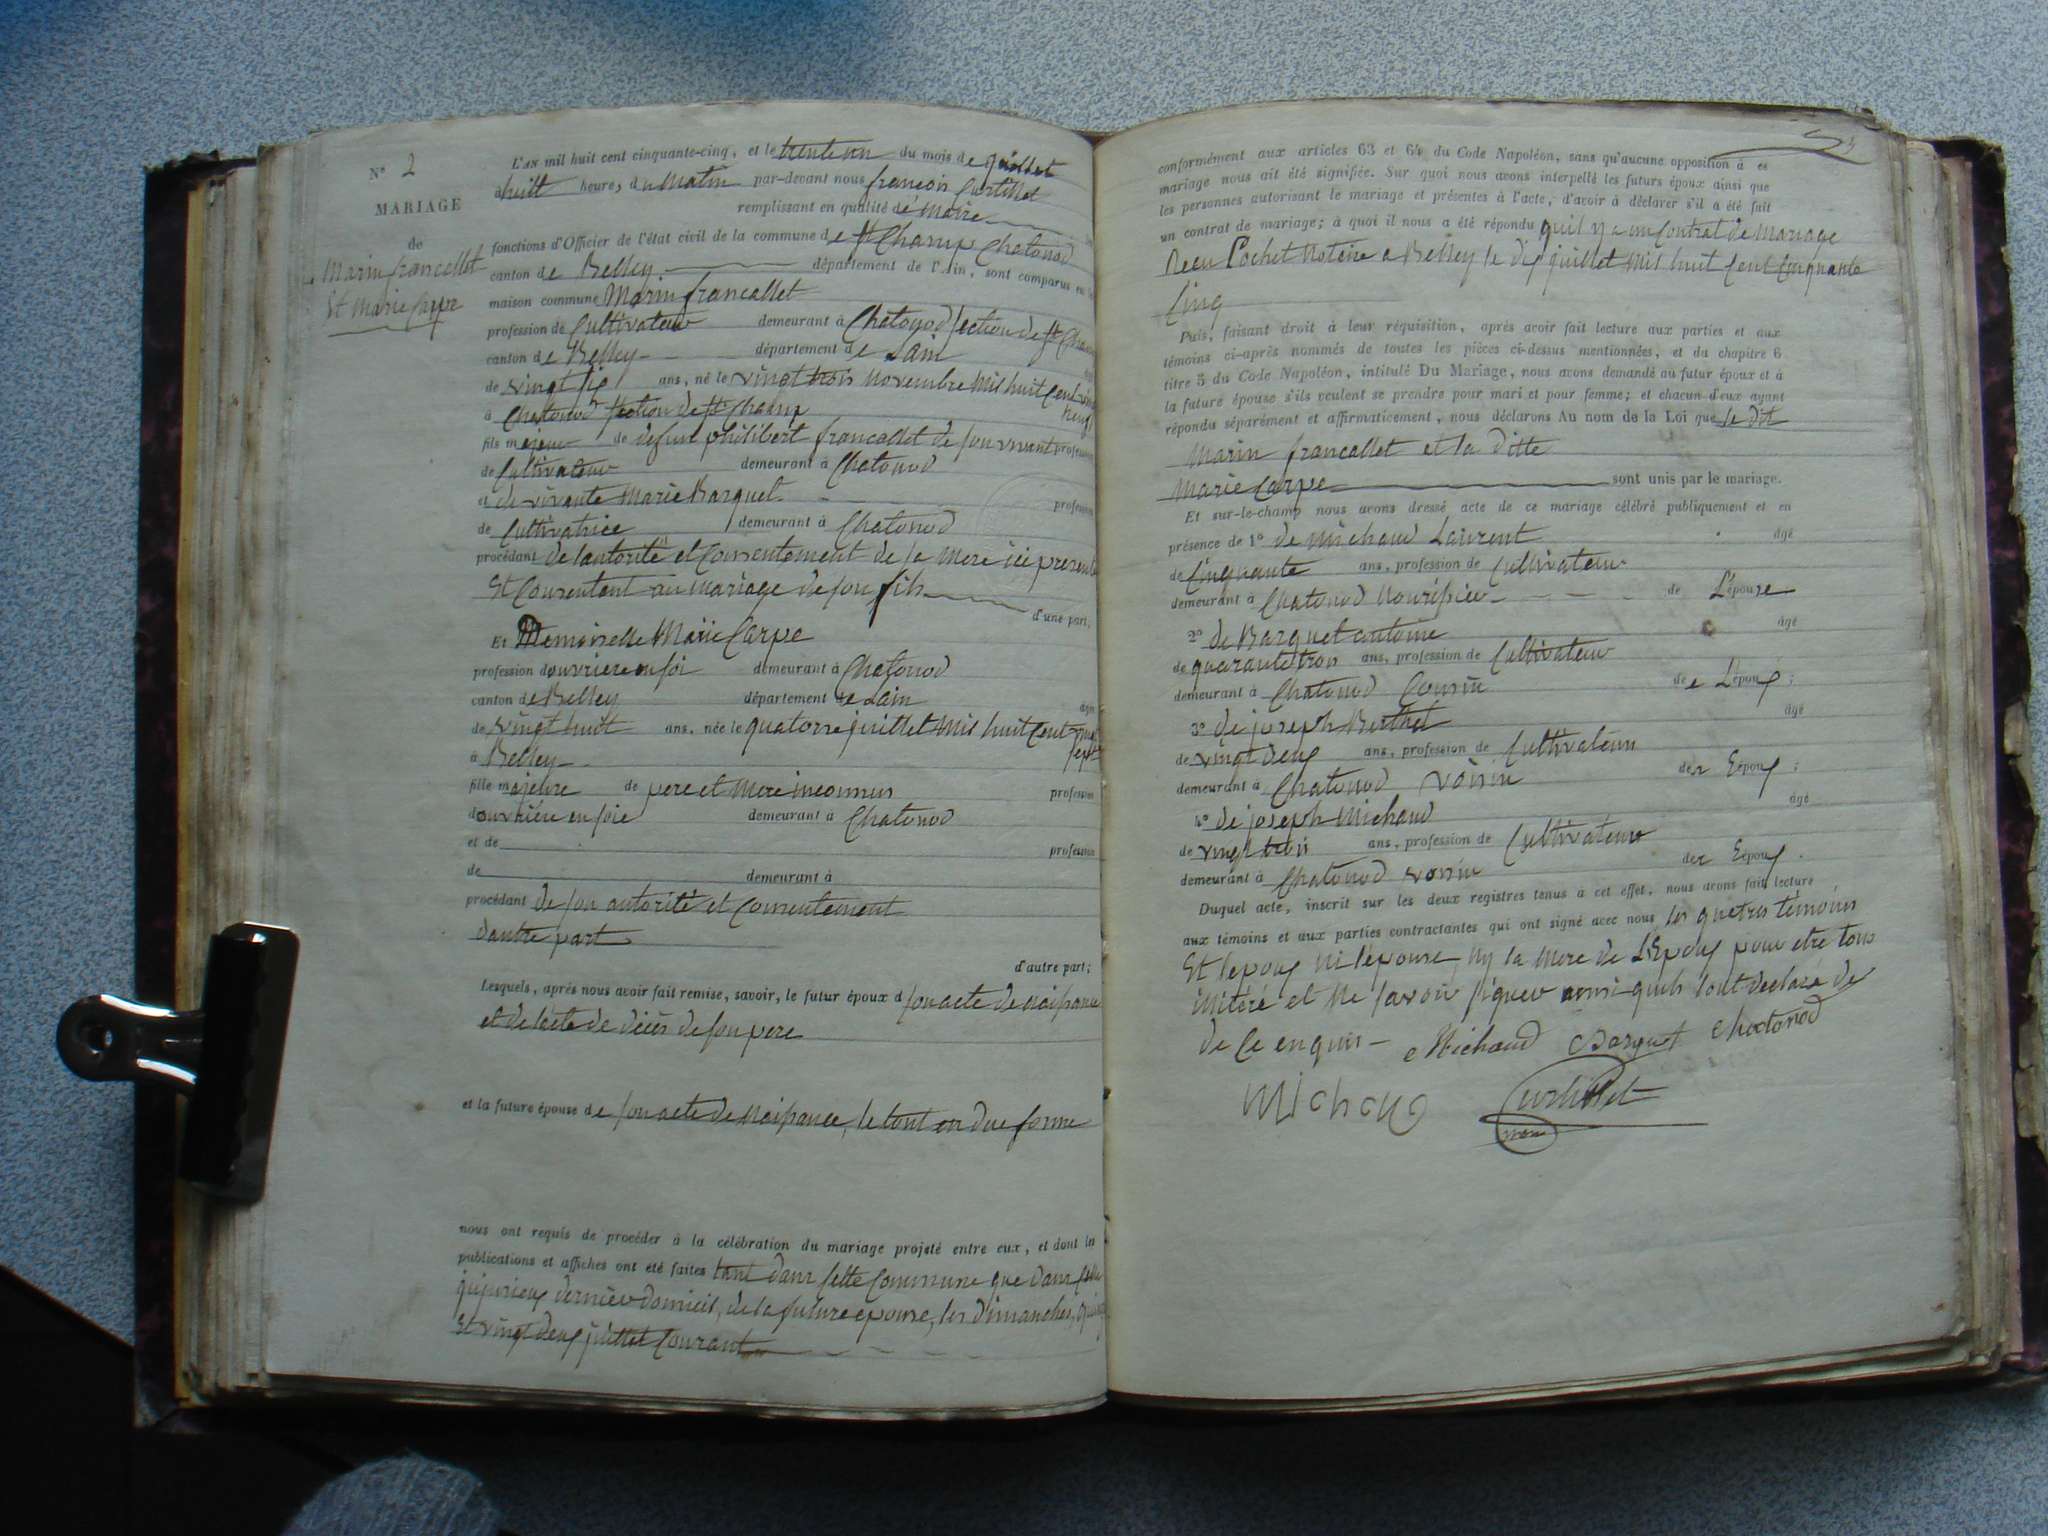 N° 2
MARIAGE
de
Marin francallet
Et Marie Carpe
L'AN mil huit cent cinquante-cinq, et le trente un du mois de juillet
à huit heures du Matin par-devant nous françois Curtillet
remplissant en qualité de Maire
fonctions d'Officier de l'état civil de la commune de St Champ Chatonod
canton de Belley département de l'Ain, sont comparus en la
maison commune Marin francallet
profession de Cultivateur demeurant à Chatonod Section de St Champ
canton de Belley département de Lain
de vingt six ans, né le vingt trois Novembre Mil huit Cent vingt
à Chatonod Section de St Champ neuf
fils majeur de defun philibert francallet de son vivant profession
de Cultivateur demeurant à Chatonod
et de vivante Marie Barquet profession
de Cultivatrice demeurant à Chatonod
procédant de lautorité et Consentement de sa Mere ici presente
Et Consentent au mariage de son fils
d'une part;
Et Demoiselle Marie Carpe
profession douvriere en soi demeurant à Chatonod
canton de Belley département de Lain
âgée
de vingt huit ans, née le quatorze juillet Mil huit Cent vingt
à Belley sept
fille majeure de pere et Mere inconnus profession
douvriére en soie demeurant à Chatonod
et de profession
de demeurant à
procédant de son autorité et Consentement
dautre part
d'autre part;
Lesquels, après nous avoir fait remise, savoir, le futur époux d son acte de Naissance
et de lacte de décès de son pere
et la future épouse de son acte de Naissance, le tout en due forme
nous ont requis de procéder à la célébration du mariage projeté entre eux, et dont les
publications et affiches ont été faites tant dans sette Commune que dans Celle
jujurieux dernier domicil, de la future epouse, les dimanches, quinze
Et vingt deux juillet Courant
conformément aux articles 63 et 64 du Code Napoléon, sans qu'aucune opposition à ce
mariage nous ait été signifiée. Sur quoi nous avons interpellé les futurs époux ainsi que
les personnes autorisant le mariage et présentes à l'acte, d'avoir à déclarer s'il a été fait
un contrat de mariage; à quoi il nous a été répondu quil y a un Contrat de Mariage
Recu Cochet Notaire a Belley le dix juillet Mil huit Cent Cinquante
Cinq
Puis, faisant droit à leur réquisition, après avoir fait lecture aux parties et aux
témoins ci-après nommés de toutes les pièces ci-dessus mentionnées, et du chapitre 6
titre 5 du Code Napoléon, intitulé Du Mariage, nous avons demandé au futur époux et à
la future épouse s'ils veulent se prendre pour mari et pour femme; et chacun d'eux ayant
répondu séparément et affirmativement, nous déclarons Au nom de la Loi que le dit
Marin francallet et la ditte
Marie Carpe sont unis par le mariage.
Et sur-le-champ nous avons dressé acte de ce mariage célébré publiquement et en
présence de 1° de Michaud Laurent âgé
de Cinquante ans, profession de Cultivateur
demeurant à Chatonod Nourisieu de L'épouse
2° de Barquet antoine âgé
de quarante trois ans, profession de Cultivateur
demeurant à Chatonod Cousin de L'époux;
3° de joseph Berthet âgé
de vingt deux ans, profession de Cultivateur
demeurant à Chatonod voisin de Lépoux;
4° de joseph Michaud âgé
de vingt trois ans, profession de Cultivateur
demeurant à Chatonod voisin de Lépoux.
Duquel acte, inscrit sur les deux registres tenus à cet effet, nous avons fait lecture
aux témoins et aux parties contractantes qui ont signé avec nous les quatres témoins
Et lepoux ni lépouse, ny la Mere de L'Epoux pour etre tous
illitéré et Ne savoir signer ainsi quils l'ont declaré de
de Ce enquis – Michaud Barquet Chatonod
Michaud Curtillet